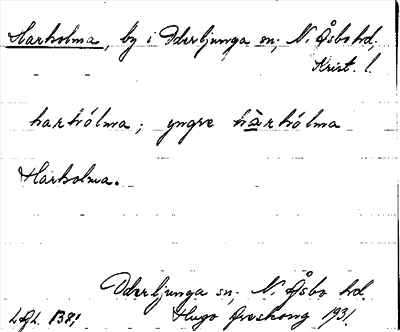 Harholma, by i Oderljunga sn, N. Åsbo hd,
Krist. l.
harhólma; yngre hàrhólma
Harholma.
Oderljunga sn, N. Åsbo hd
Hugo Areskoug 1931